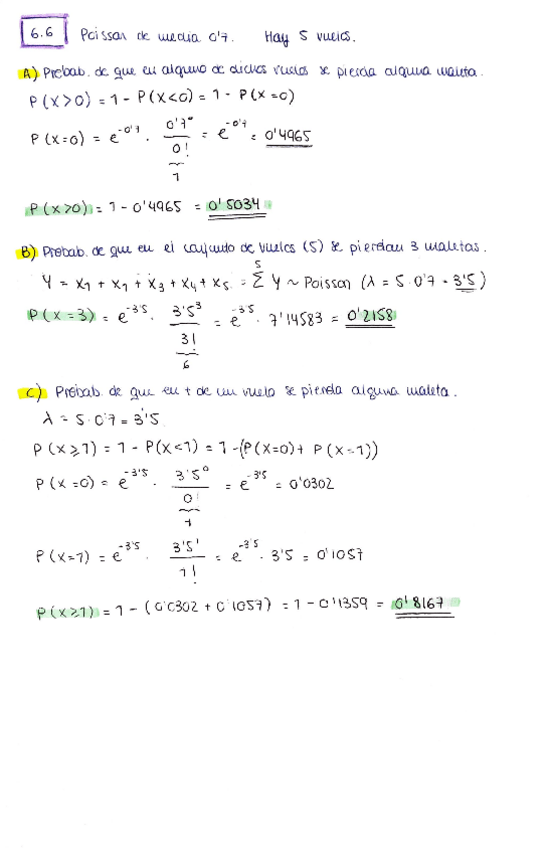 6.6 Poisson de media 0'7. Hay 5 vuelos.
A) Probab. de que en alguno de dichos vuelos se pierda alguna maleta.
P(X>0) = 1 - P(X<0) = 1 - P(X=0)
P(X=0) = e^-0'7 · 0'7^0 / 0! = e^-0'7 = 0'4965
1
P(X>0) = 1 - 0'4965 = 0'5034
B) Probab. de que en el conjunto de vuelos (5) se pierdan 3 maletas.
Y = X1 + X1 + X3 + X4 + X5 = Σ^5 Y ~ Poisson (λ = 5·0'7 = 3'5)
P(X=3) = e^-3'5 · 3'5^3 / 3! = e^-3'5 · 7'14583 = 0'2158
6
C) Probab. de que en + de un vuelo se pierda alguna maleta.
λ = 5·0'7 = 3'5
P(X≥1) = 1 - P(X<1) = 1 - (P(X=0) + P(X=1))
P(X=0) = e^-3'5 · 3'5^0 / 0! = e^-3'5 = 0'0302
1
P(X=1) = e^-3'5 · 3'5^1 / 1! = e^-3'5 · 3'5 = 0'1057
P(X≥1) = 1 - (0'0302 + 0'1057) = 1 - 0'1359 = 0'8167